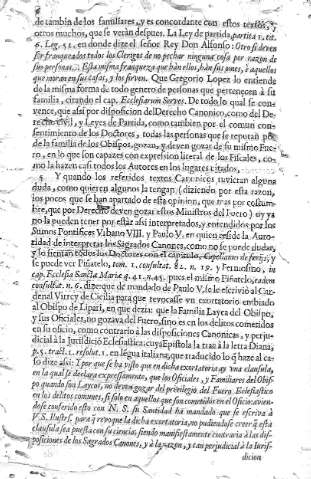 de tambien de los familiares, y es concordante con estos textos,
que se verán despues. La Ley de partida, partita 1. tit.
6. Leg. 51. en donde dize el señor Rey Don Alfonso: Otro si deven
ser franqueados todos los Clerigos de no pechar ninguna cosa por razon de
sus personas... Esta misma franqueza que han ellos, han sus omes, è aquellos
que moran en sus casas, y los sirven. Que Gregorio Lopez lo entiende
de la misma forma de todo genero de personas que pertenecen à su
familia, citando el cap. Ecclesiarum Servos. De todo lo qual se con-
vence, que assi por disposicion del Derecho Canonico, como del De-
recho Civil, y Leyes de Partida, como tambien por el comun con-
sentimiento de los Doctores, todas las personas que se reputan por
de la familia de los Obispos, gozan, y deven gozar de su mismo Fue-
ro, en lo que son capaces con expression literal de los Fiscales, co-
mo la hazen casi todos los Autores en los lugares citados.
5 Y quando los referidos textos Canonicos tuvieran alguna
duda, como quieren algunos la tengan, (diziendo por esta razon,
los pocos que se han apartado de esta opinion, que mas por costum-
bre, que por Derecho deven gozar estos Ministros del Fuero) oy ya
no la pueden tener por estàr assi interpretados, y entendidos por los
Sumos Pontifices Vrbano VIII. y Paulo V. en quienes reside la Auto-
ridad de interpretar los Sagrados Canones, como no se puede dudar,
y lo sientan todos los Doctores con el capitulo,
se puede vèr Piñatelo, tom. 1. consultat. 82. n. 19. y Fermosino, in
cap. Ecclesia Sanctæ Mariæ q. 41. n. 45. pues el mismo Piñatelo,
consultat. n. 6. dize que de mandado de Paulo V. se le escrivió al Car-
denal Virrey de Cicilia para que revocasse vn exortatorio embiado
al Obispo de Lipari, en que dezia: que la Familia Layca del Obispo,
y sus Oficiales, no gozava del Fuero, sino es en los delitos cometidos
en su oficio, como contrario à las disposiciones Canonicas, y perju-
dicial à la Jurisdició Eclesiastica: cuya Epistola la trae à la letra Diana,
p. 5. tract. 1. resolut. 1. en légua italiana, que traducido lo q̃ haze al ca-
so dize assi: Y por que se ha visto que en dicha exortatoria ay vna clausula,
en la qual se declara expressamente, que los Oficiales, y Familiares del Obis-
po quando son Laycos, no devan gozar del privilegio del Fuero Eclesiastico
en los delitos comunes, si solo en aquellos que son cometidos en el Oficio: avien-
dose conferido esto con N. S. su Santidad hà mandado que se escriva à
V. S. Ilustrs. para q̃ revoque la dicha exortatoria, no pudiendose creer q̃ esta
clausula sea puesta con su ciencia, siendo manifiestamente contraria à las dis-
posiciones de los Sagrados Canones, y à la razon, y tan perjudicial à la Juris-
dicion